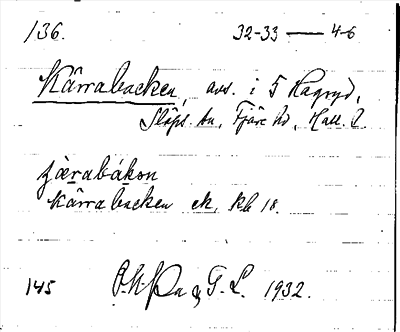 136. 32-33 — 4-6
Kärrabacken, avs. i 5 Hagryd,
Släps sn, Fjäre hd, Hall. l.
j̀ærabákɒn
Kärrabacken ek. kbl 18.
145 O.H. & G.L. 1932.